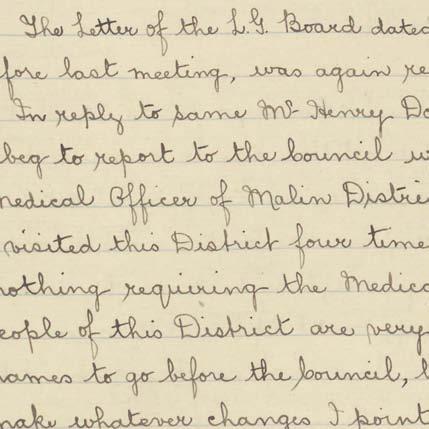 The Letter of the L.G. Board dated
fore last meeting, was again re
In reply to same Mr Henry Do
beg to report to the Council w
medical Officer of Malin Distri
visited this District four time
nothing requiring the Medica
eople of this District are very
names to go before the Council, b
make whatever changes I point